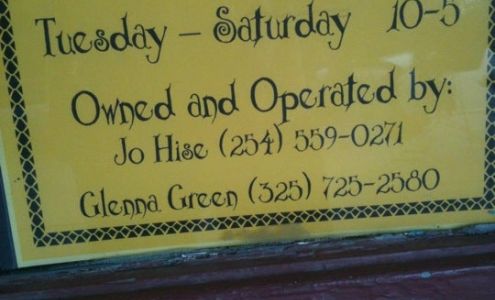 Tuesday – Saturday 10-5
Owned and Operated by:
Jo Hise (254) 559-0271
Glenna Green (325) 725-2580